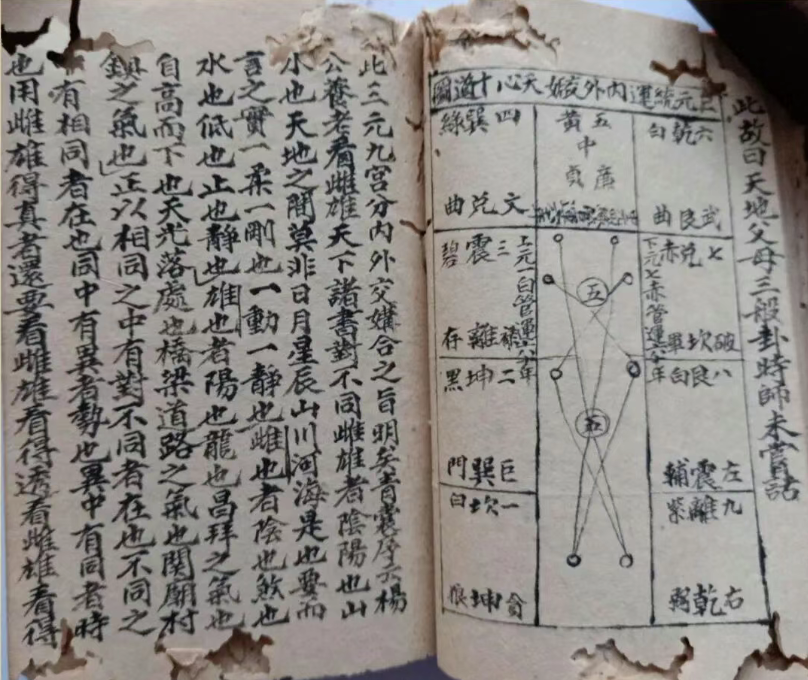 此故曰天地父母三般卦時師未嘗話
三元統運內外交媾天心十道圖
六乾白
武艮曲
五黃中
廉貞
四巽綠
文兌曲
七兌赤
破坎軍
下元七赤管運六十年
五
五
上元一白管運六十年
三震碧
祿離存
八艮白
左震輔
二坤黑
巨巽門
九離紫
右乾弼
一坎白
貪坤狼
此三元九宮分內外交媾合之旨明矣青囊序云楊
公養老看雌雄天下諸書對不同雌雄者陰陽也山
小也天地之間莫非日月星辰山川河海是也要而
言之實一柔一剛也一動一靜也雌也者陰也煞也
水也低也止也靜也雄也者陽也龍也昌拜之氣也
自高而下也天光落處也橋梁道路之氣也関廟村
鎮之氣也正以相同之中有對不同者在也不同之
有相同者在也同中有異者勢也異中有同者時
也用雌雄得真者還要看雌雄看得透看雌雄看得